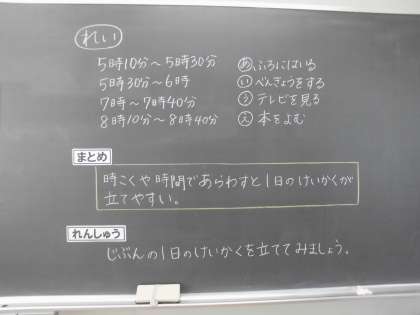 れい
5時10分～5時30分 あ ふろにはいる
5時30分～6時 い べんきょうをする
7時～7時40分 う テレビを見る
8時10分～8時40分 え 本をよむ
まとめ
時こくや時間であらわすと1日のけいかくが
立てやすい。
れんしゅう
じぶんの1日のけいかくを立ててみましょう。